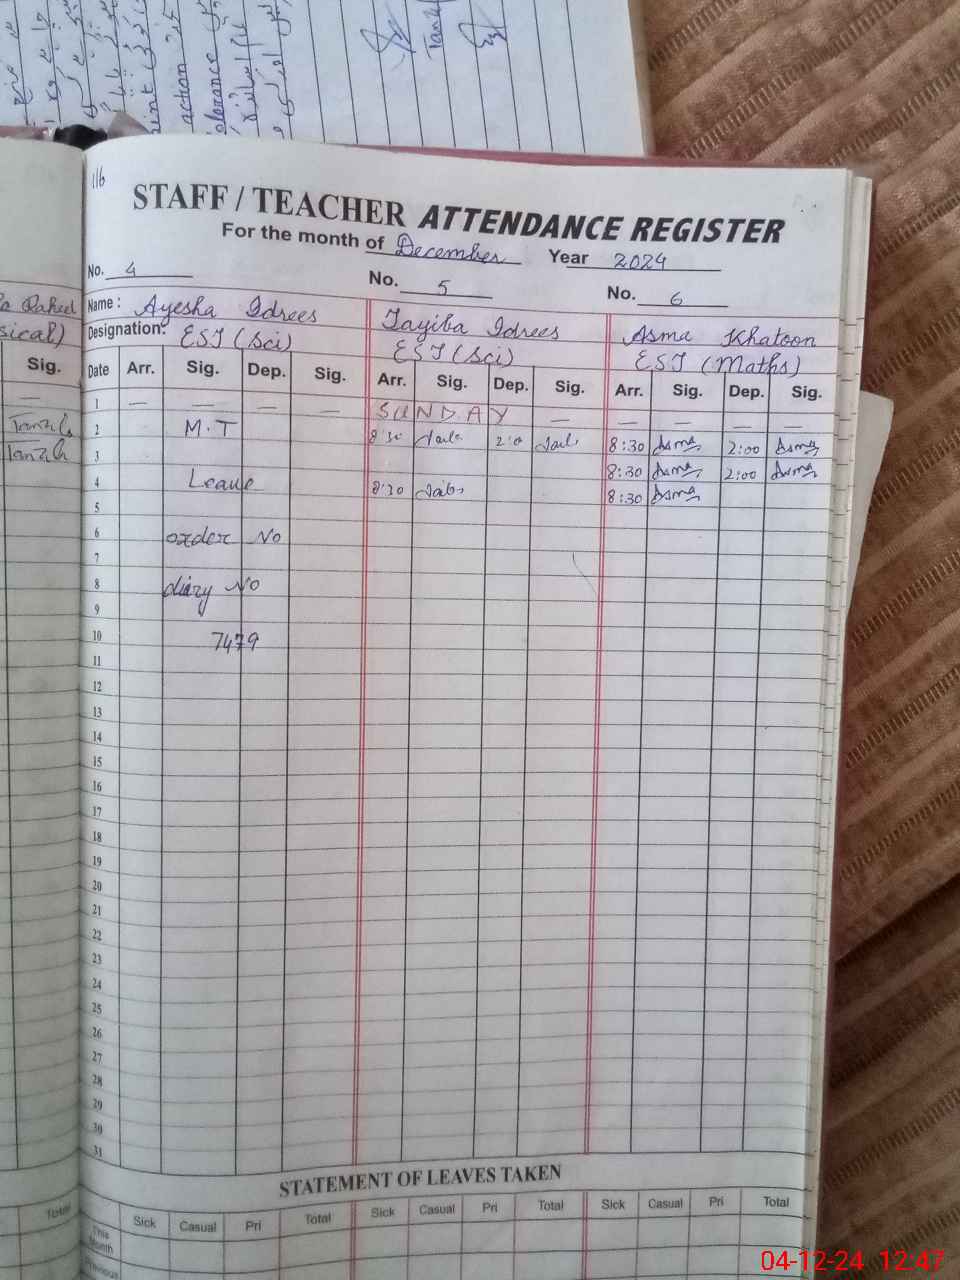 action
116
STAFF / TEACHER ATTENDANCE REGISTER
For the month of December Year 2024
No. 4 No. 5 No. 6
Name: Ayesha Idrees Tayiba Idrees Asma Khatoon
Designation: EST (Sci) EST (Sci) EST (Maths)
Sig. Date Arr. Sig. Dep. Sig. Arr. Sig. Dep. Sig. Arr. Sig. Dep. Sig.
— 1 — — — — SUNDAY — — — — —
2 M.T 8:30 2:0 8:30 Asma 2:00 Asma
3 8:30 Asma 2:00 Asma
4 Leave 8:30 8:30 Asma
5
6 order No
7
8 diary No
9
10 7479
11
12
13
14
15
16
17
18
19
20
21
22
23
24
25
26
27
28
29
30
31
STATEMENT OF LEAVES TAKEN
Total Sick Casual Pri Total Sick Casual Pri Total Sick Casual Pri Total
This Month
Previous
04-12-24 12:47